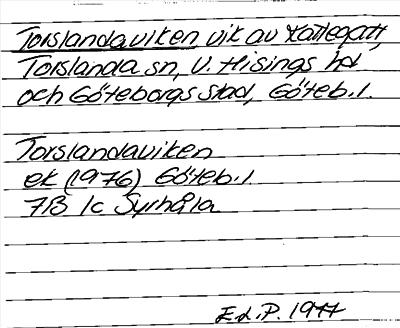 Torslandaviken vik av Kattegatt,
Torslanda sn, V. Hisings hd
och Göteborgs stad, Göteb. l.
Torslandaviken
ek (1976) Göteb. l
7B 1c Syrhåla
E.d.P. 1977